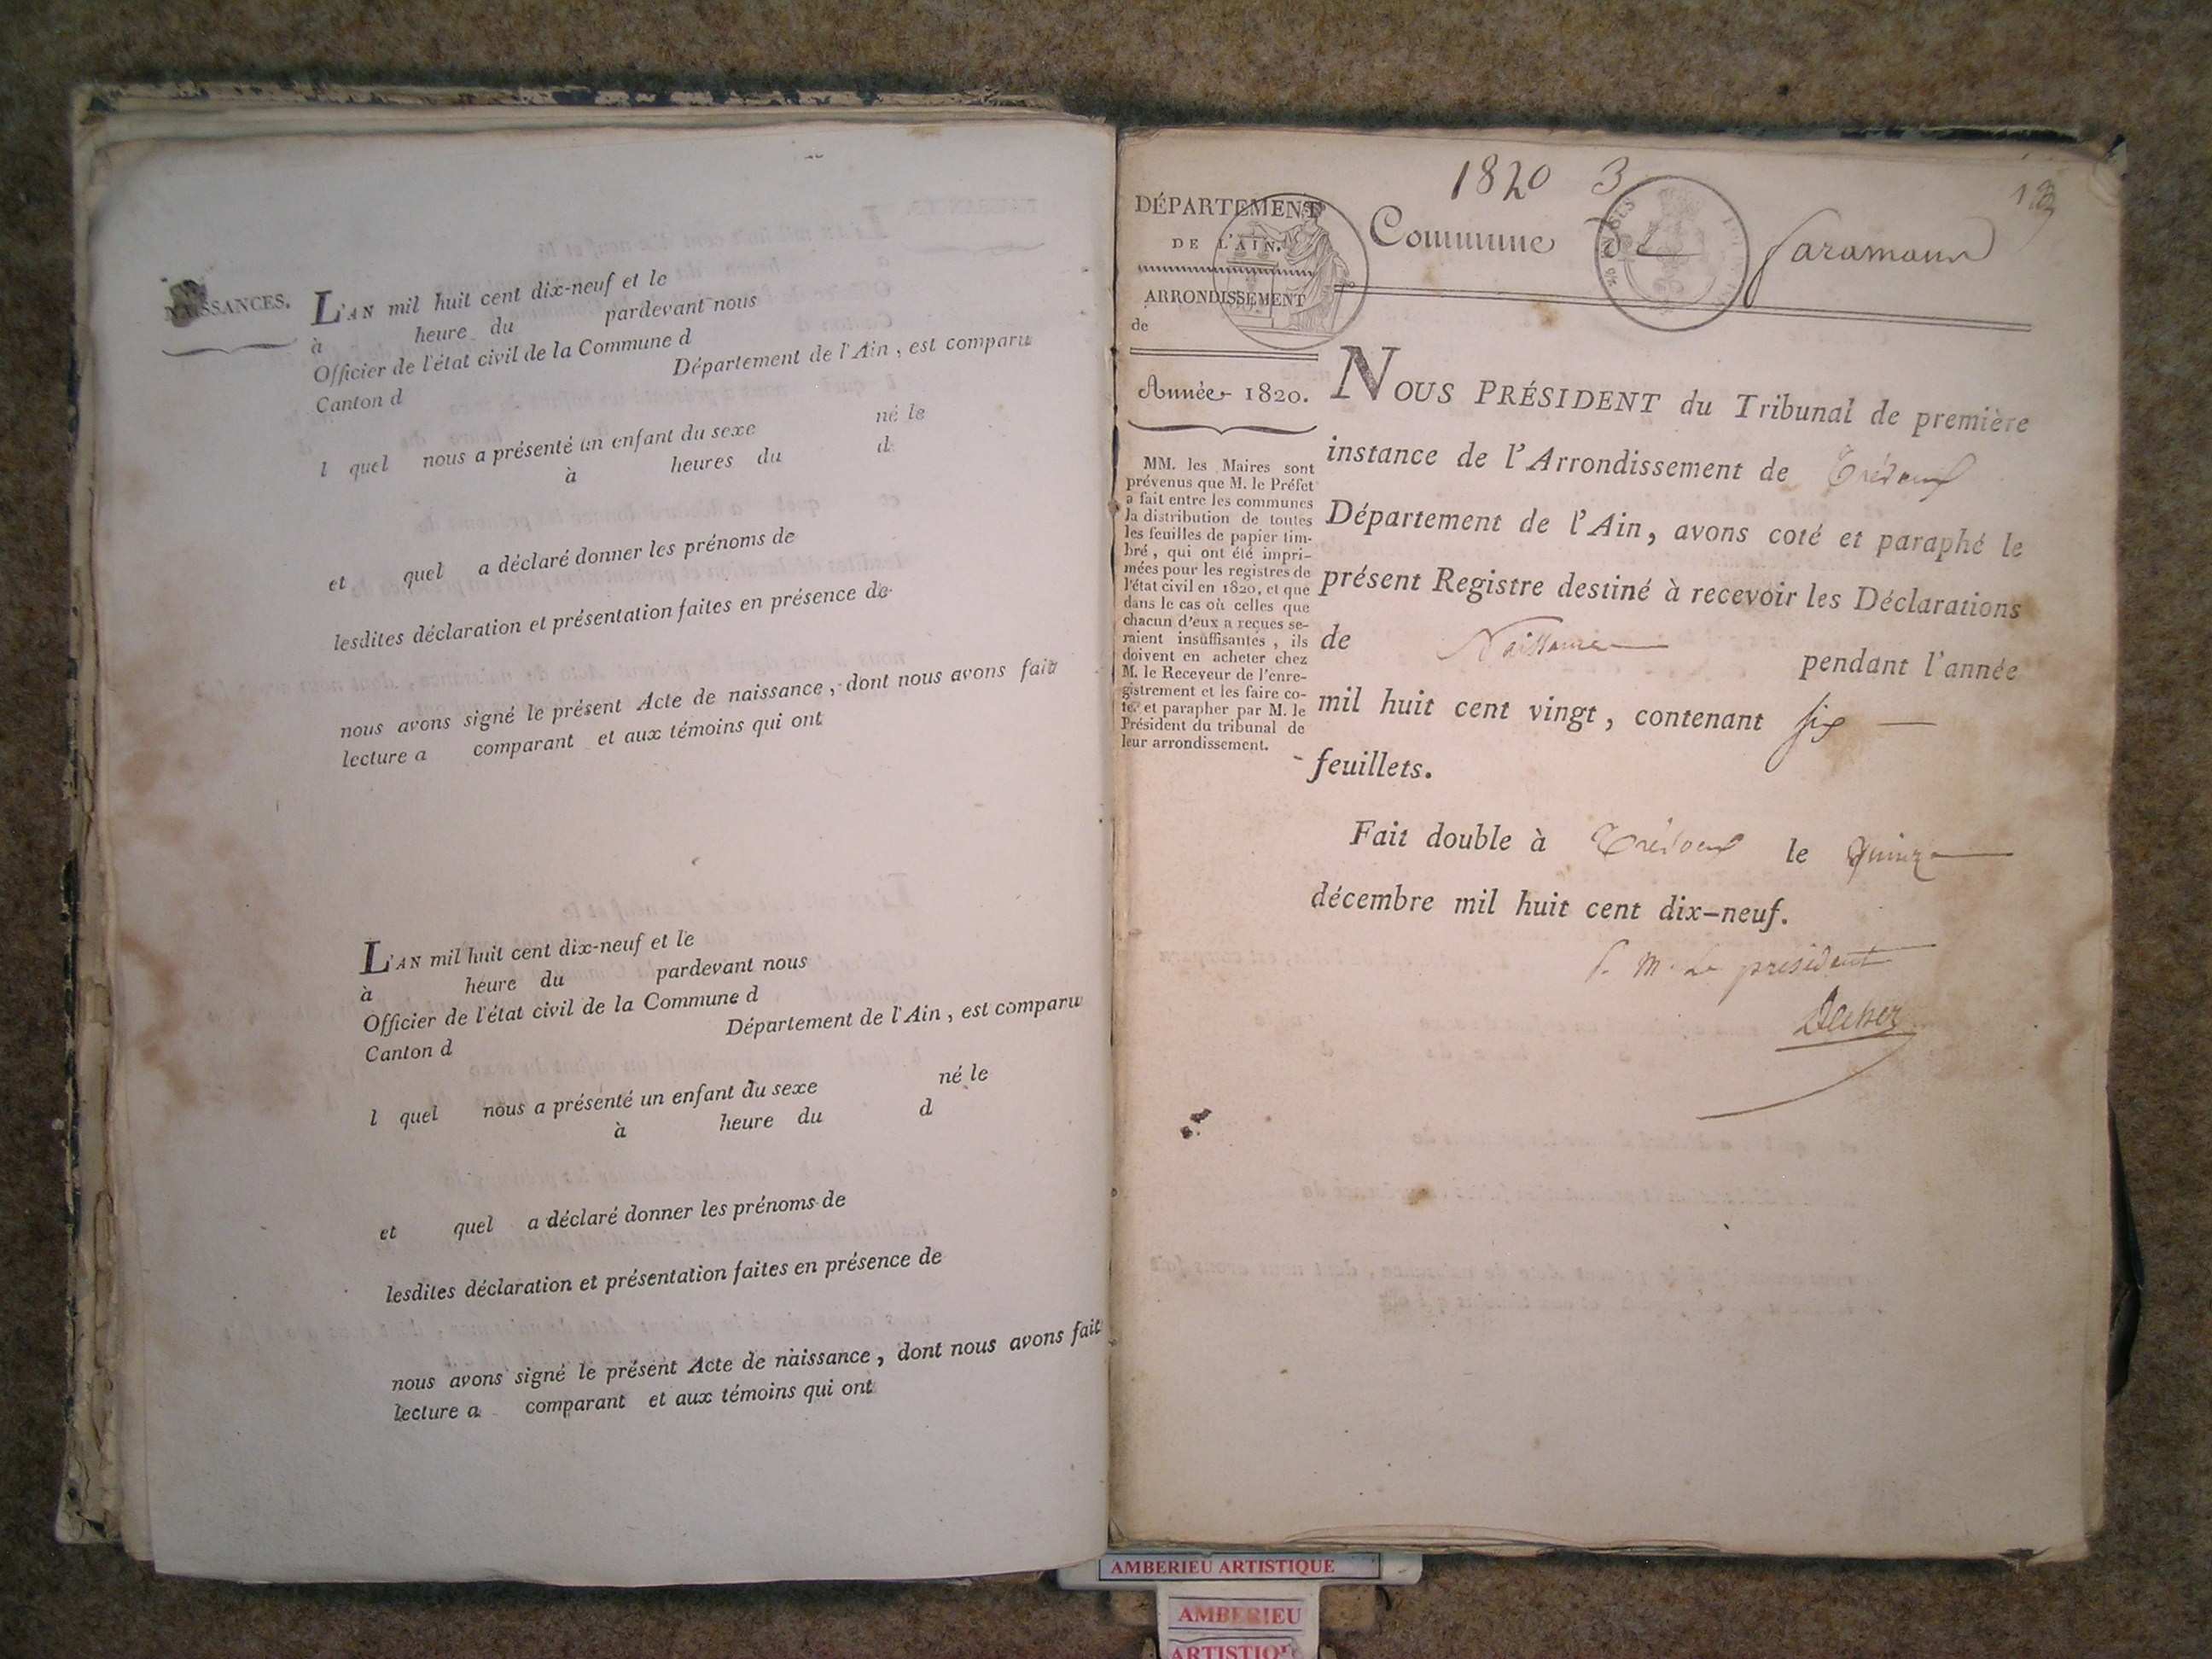 NAISSANCES.
L'AN mil huit cent dix-neuf et le
à heure du pardevant nous
Officier de l'état civil de la Commune d
Canton d Département de l'Ain, est comparu
l quel nous a présenté un enfant du sexe né le
à heures du d
et quel a déclaré donner les prénoms de
lesdites déclaration et présentation faites en présence de
nous avons signé le présent Acte de naissance, dont nous avons fait
lecture a comparant et aux témoins qui ont
L'AN mil huit cent dix-neuf et le
à heure du pardevant nous
Officier de l'état civil de la Commune d
Canton d Département de l'Ain, est comparu
l quel nous a présenté un enfant du sexe né le
à heure du d
et quel a déclaré donner les prénoms de
lesdites déclaration et présentation faites en présence de
nous avons signé le présent Acte de naissance, dont nous avons fait
lecture a comparant et aux témoins qui ont
1820 3
DÉPARTEMENT
DE L'AIN.
ARRONDISSEMENT
de
Année 1820.
MM. les Maires sont
prévenus que M. le Préfet
a fait entre les communes
la distribution de toutes
les feuilles de papier tim-
bré, qui ont été impri-
mées pour les registres de
l'état civil en 1820, et que
dans le cas où celles que
chacun d'eux a reçues se-
raient insuffisantes, ils
doivent en acheter chez
M. le Receveur de l'enre-
gistrement et les faire co-
ter et parapher par M. le
Président du tribunal de
leur arrondissement.
Commune de Faramans
NOUS PRÉSIDENT du Tribunal de première
instance de l'Arrondissement de Trévoux
Département de l'Ain, avons coté et paraphé le
présent Registre destiné à recevoir les Déclarations
de Naissance pendant l'année
mil huit cent vingt, contenant six
feuillets.
Fait double à Trévoux le quinze
décembre mil huit cent dix-neuf.
P. M. Le président
AMBERIEU ARTISTIQUE
AMBERIEU
ARTISTIQUE